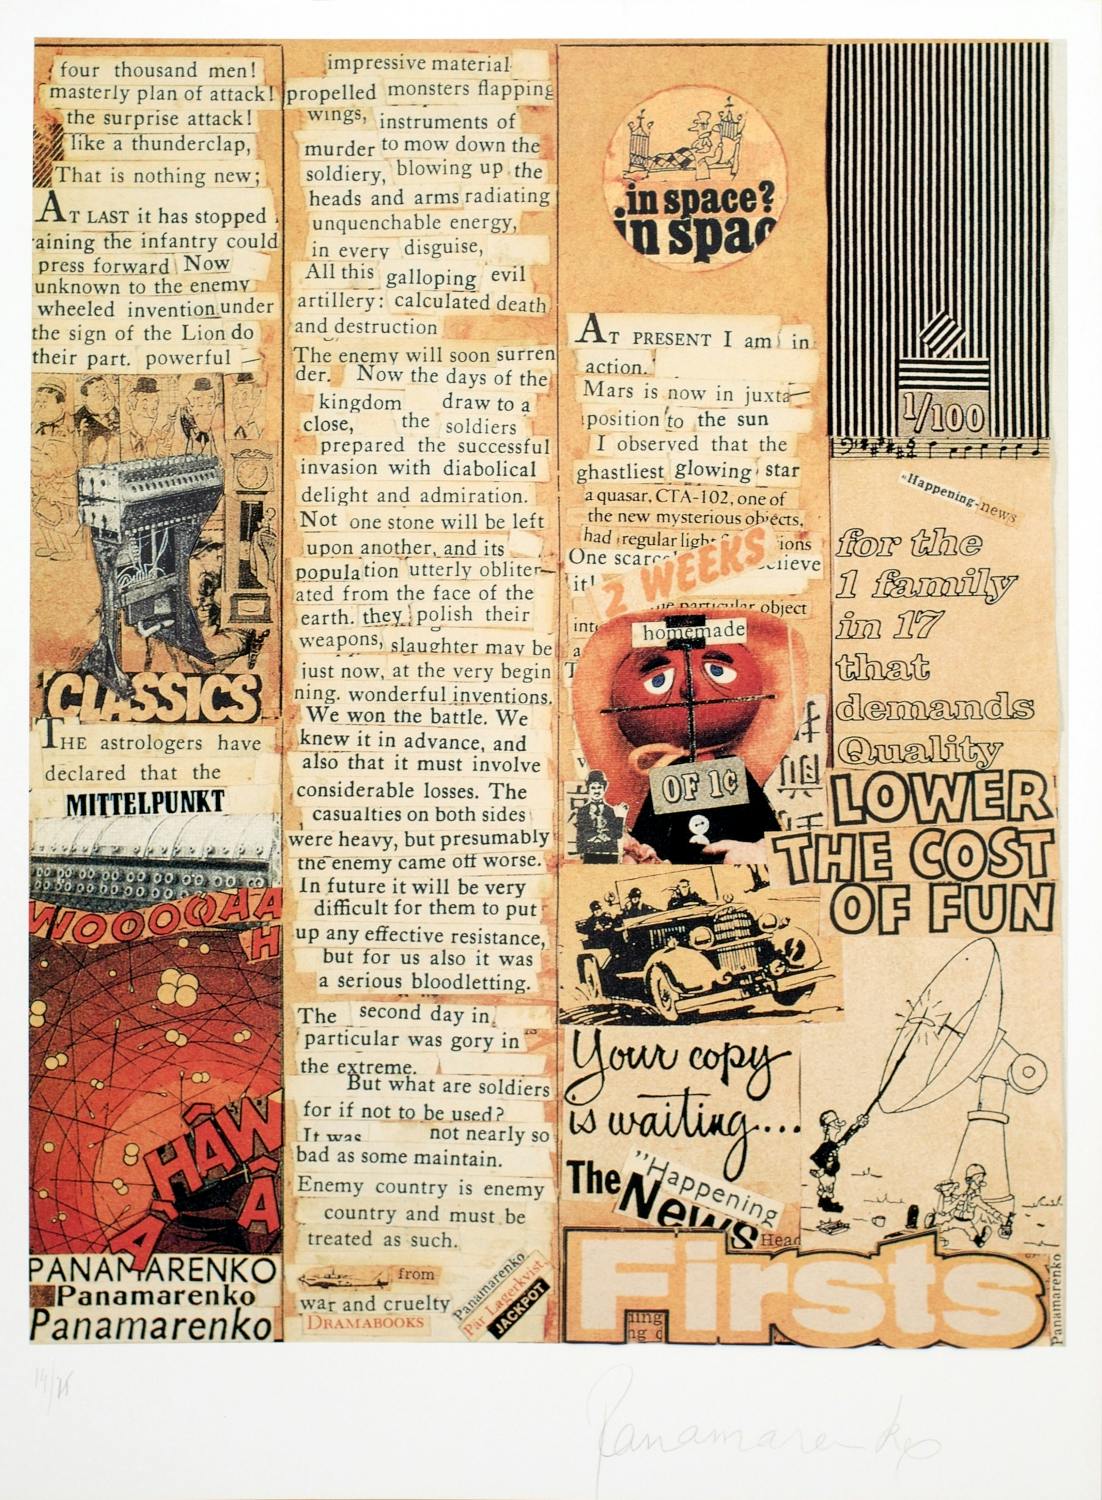 four thousand men!
masterly plan of attack!
the surprise attack!
like a thunderclap,
That is nothing new;
AT LAST it has stopped
raining the infantry could
press forward Now
unknown to the enemy
wheeled invention under
the sign of the Lion do
their part. powerful —
CLASSICS
THE astrologers have
declared that the
MITTELPUNKT
WOOOOAA
H
HÂW
Â
A
PANAMARENKO
Panamarenko
Panamarenko
impressive material
propelled monsters flapping
wings, instruments of
murder to mow down the
soldiery, blowing up the
heads and arms radiating
unquenchable energy,
in every disguise,
All this galloping evil
artillery: calculated death
and destruction
The enemy will soon surren
der. Now the days of the
kingdom draw to a
close, the soldiers
prepared the successful
invasion with diabolical
delight and admiration.
Not one stone will be left
upon another, and its
population utterly obliter-
ated from the face of the
earth. they polish their
weapons, slaughter may be
just now, at the very begin
ning. wonderful inventions.
We won the battle. We
knew it in advance, and
also that it must involve
considerable losses. The
casualties on both sides
were heavy, but presumably
the enemy came off worse.
In future it will be very
difficult for them to put
up any effective resistance,
but for us also it was
a serious bloodletting.
The second day in
particular was gory in
the extreme.
But what are soldiers
for if not to be used?
It was not nearly so
bad as some maintain.
Enemy country is enemy
country and must be
treated as such.
from
war and cruelty
DRAMABOOKS
Panamarenko
Par Lagerkvist.
JACKPOT
in space?
in spac
AT PRESENT I am in
action.
Mars is now in juxta—
position to the sun
I observed that the
ghastliest glowing star
a quasar, CTA-102, one of
the new mysterious objects,
had regular light ions
One scarce believe
it!
2 WEEKS
particular object
homemade
OF 1¢
Your copy
is waiting....
The "Happening
News
Head
Firsts
1/100
"Happening-news
for the
1 family
in 17
that
demands
Quality
LOWER
THE COST
OF FUN
Panamarenko
14/75
Panamarenko